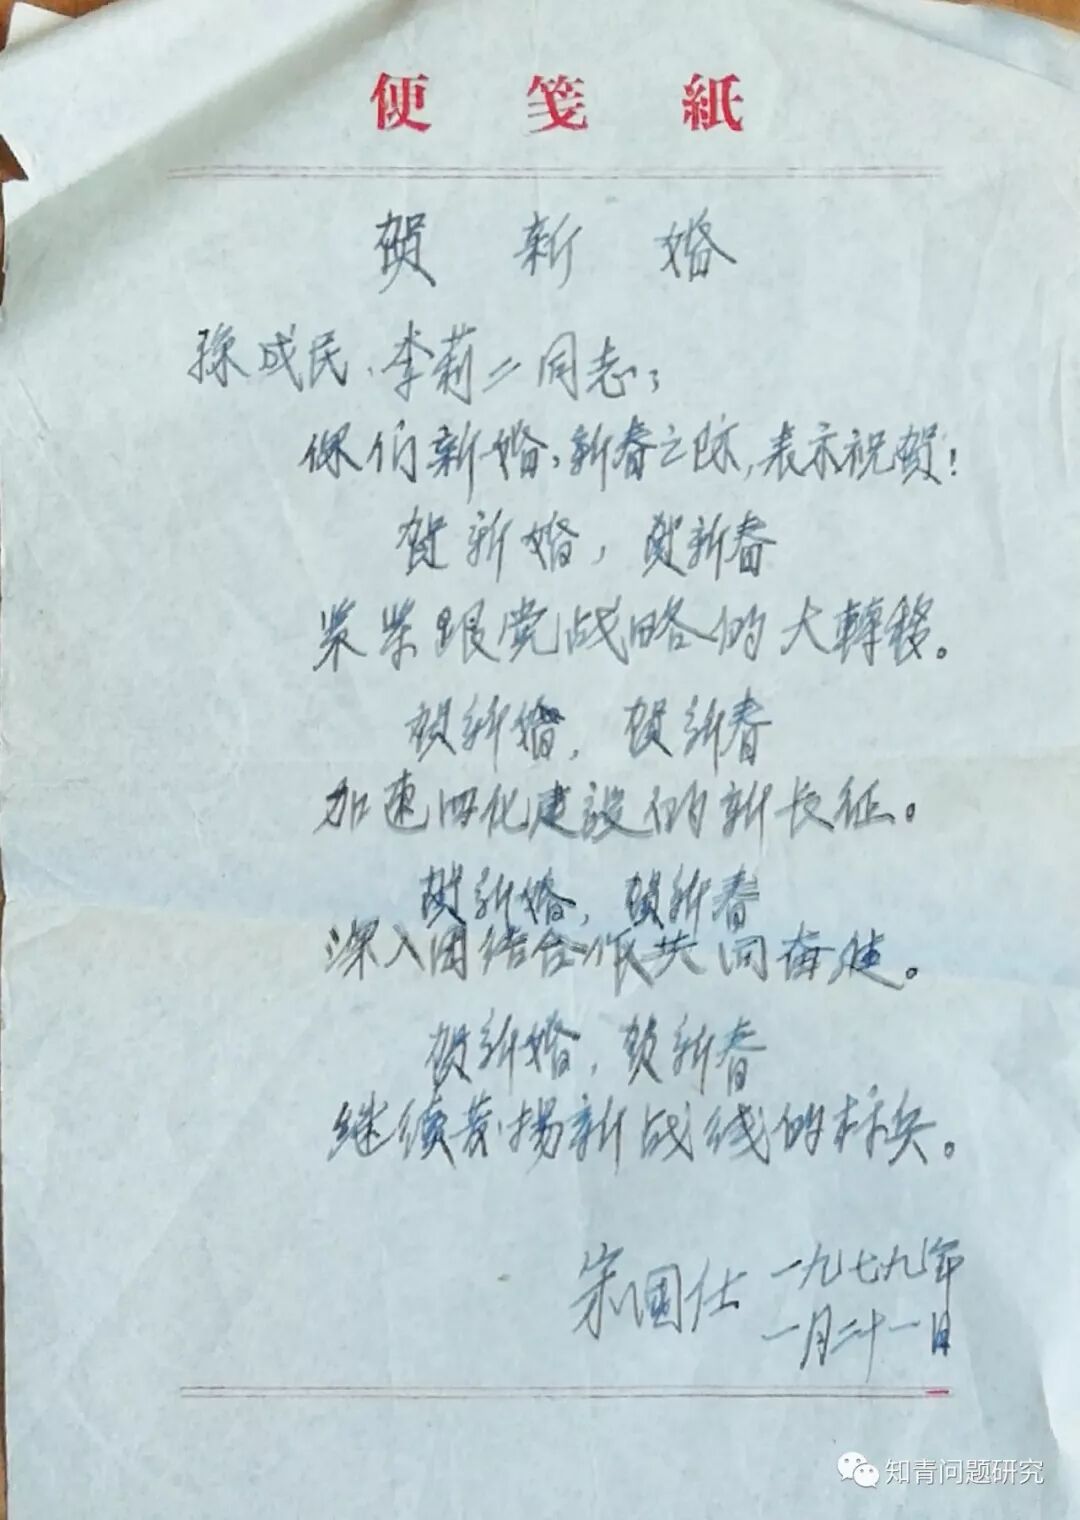 便笺紙
贺新婚
孫成民、李莉二同志:
你们新婚、新春之际,表示祝贺!
贺新婚,贺新春
紧紧跟党战略的大轉移。
贺新婚,贺新春
加速四化建設的新长征。
贺新婚,贺新春
深入团结合作共同奋进。
贺新婚,贺新春
继续发扬新战线的标兵。
宋国仕 一九七九年
一月二十一日
知青问题研究